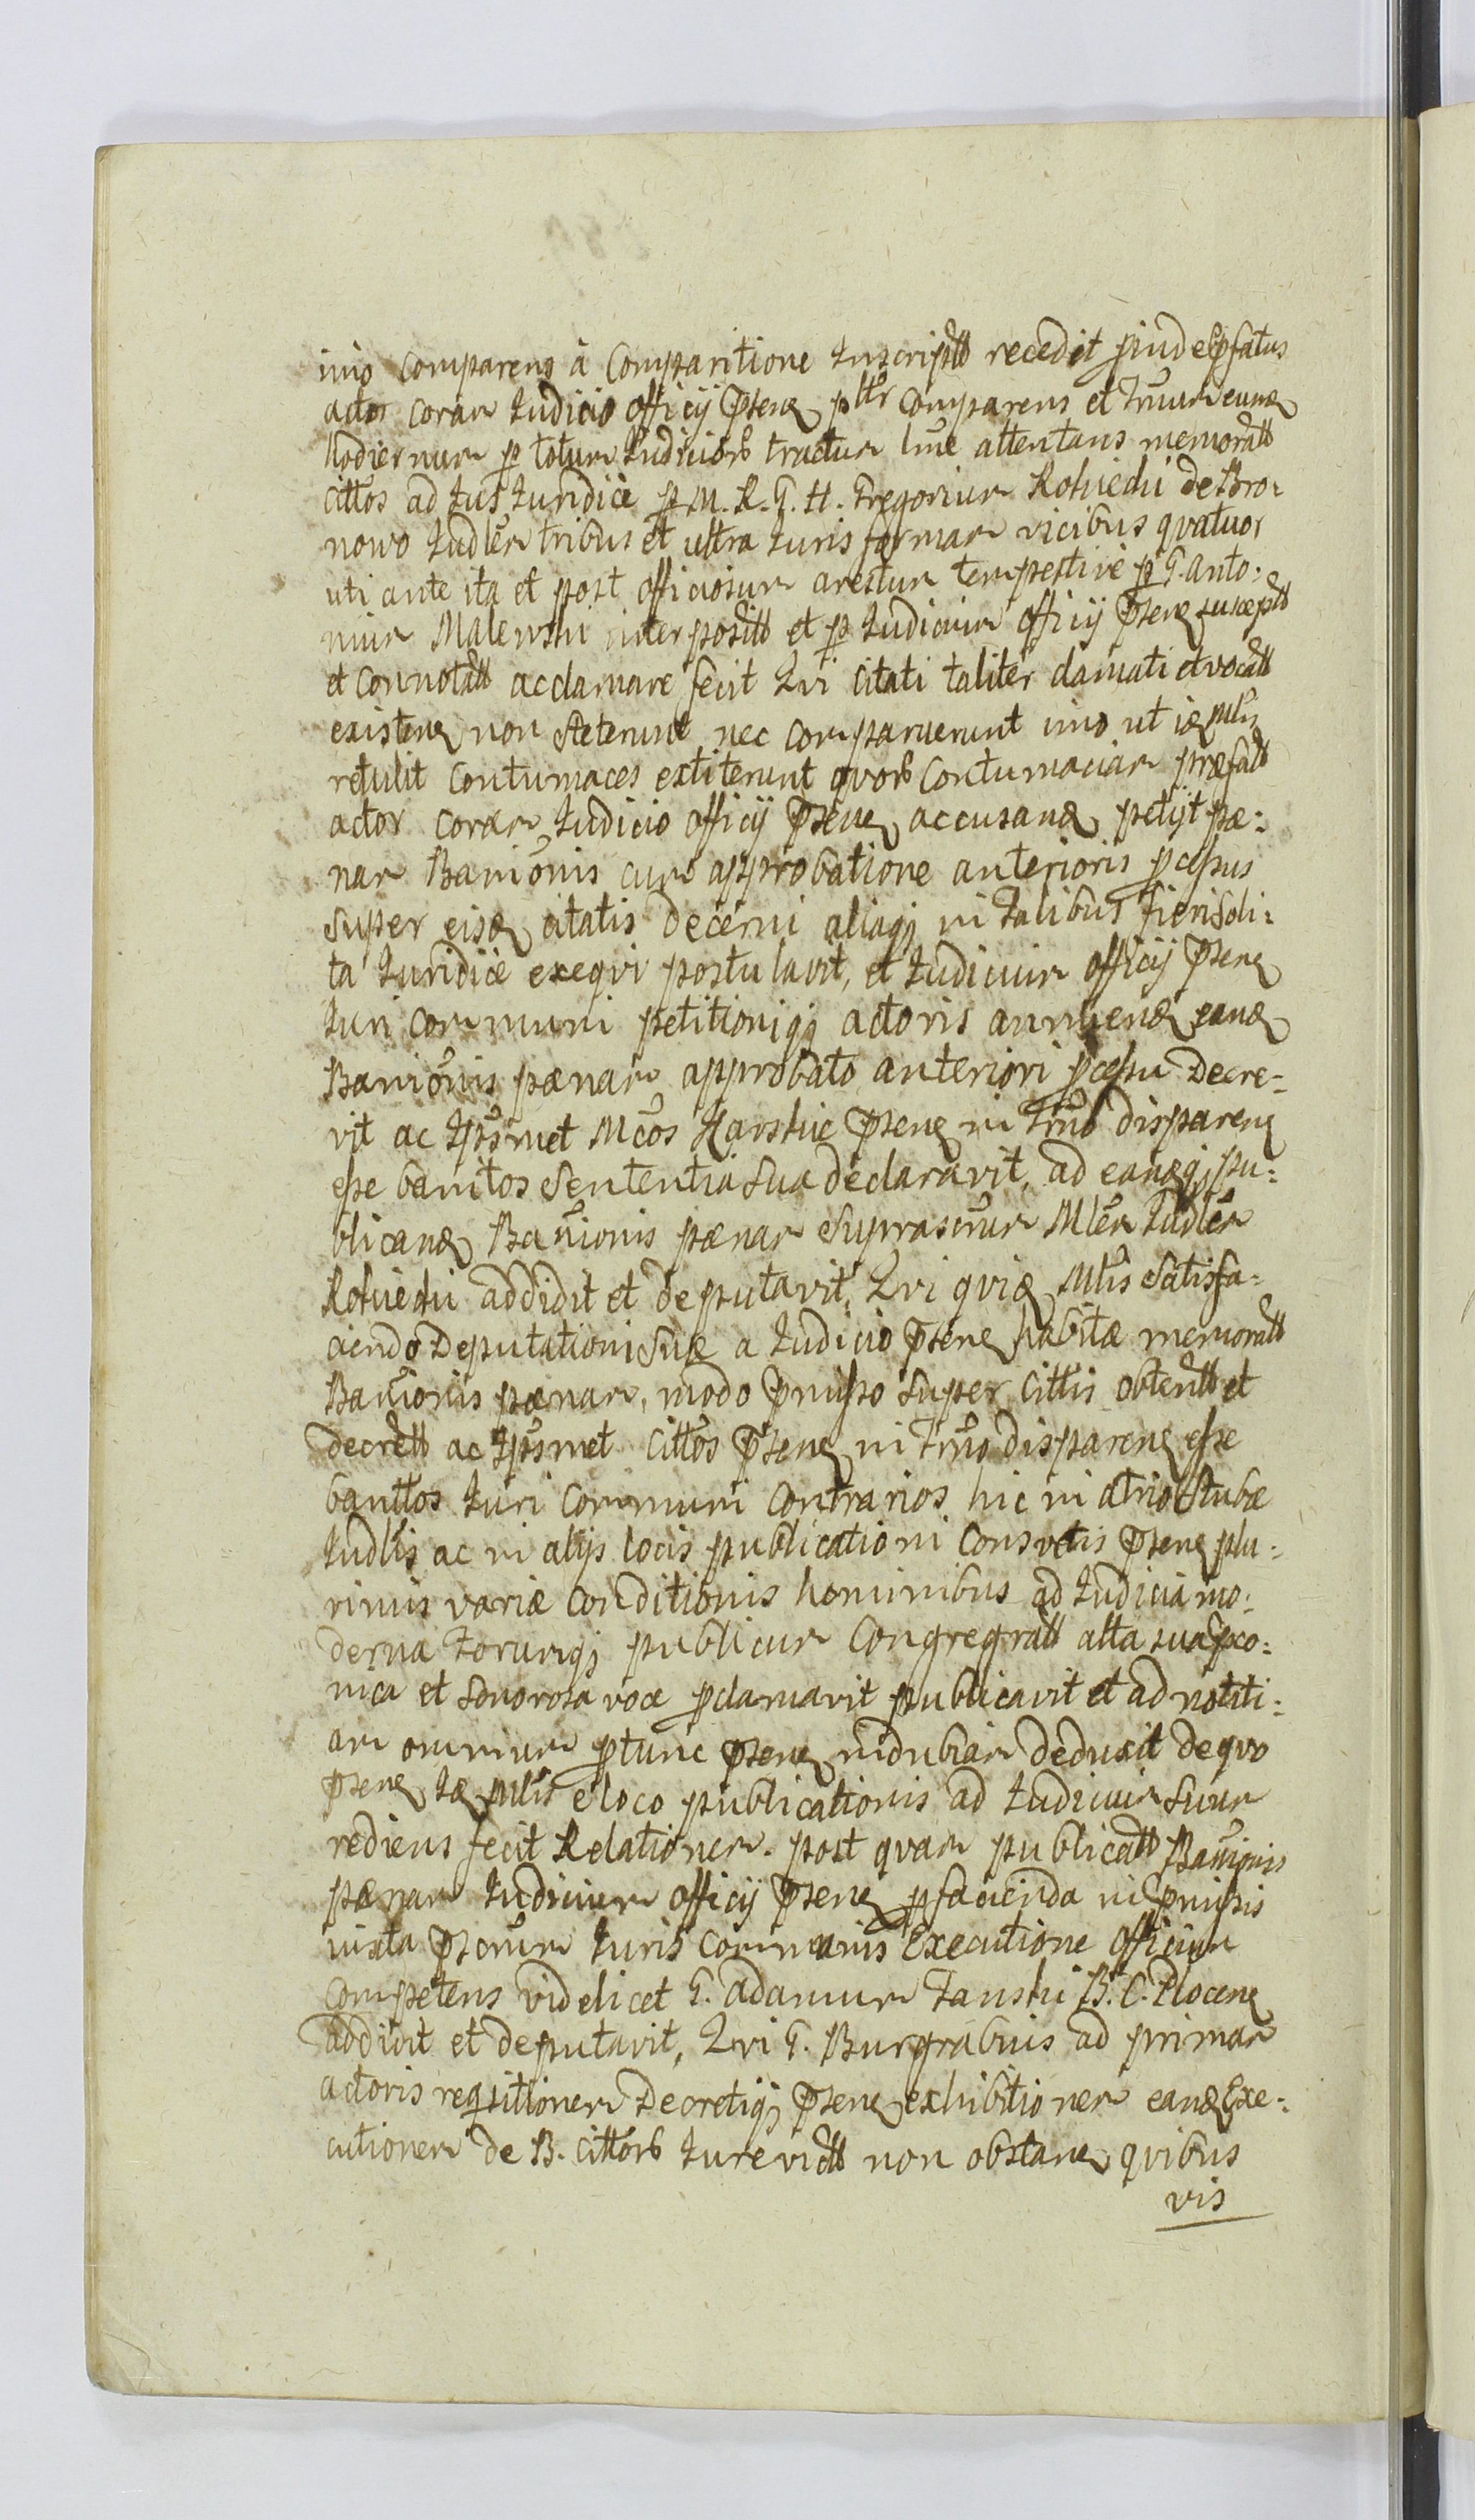 imo Comparens à Comparitione Inscriptt recedit proinde Eprfatus
actor coram Iudicio officij Psens pltr Comparens et Trmum eund
hodiernum p totum Iudiciorb tractum lme attentans memoratt
cittos ad Ius Iuridice p M. R. G. H. Gregorium Rokicki de Bro:
nowo Iudlem tribus et ultra Iuris formam vicibus qvatuor
uti ante ita et post officiosum arestum tempestive p G. Anto:
nium Malewski interpositt et p Iudicium officij Psens suscept
et Connotatt acclamare fecit Qvi Citati taliter clamati et vocatt
existens non steterunt nec Comparuerunt imo ut id Mlis
retulit Contumaces extiterunt qvorb Contumaciam præfatt
actor coram Iudicio officij Psens accusand petijt pæ:
nam Banionis cum approbatione anterioris pcessus
super eisd citatis Decerni aliaqj in talibus fieri soli:
ta Iuridice exeqvi postulavit, et Iudicium officij Psens
Iuri Communi petitioniqj actoris annuend eand
Banionis pænam approbato anteriori pcessu Decre=
vit ac Ipsmet Mcos Karskie Psens in Trno disparens
esse banitos Sententia sua declaravit, ad eandqj pu:
blicand Banionis pænam suprascrum Mlem Iudlem
Rokicki addidit et deputavit, Qvi qvid Mlis satisfa=
ciendo Deputationi suæ a Iudicio Psens habitæ memoratt
Banionis pænam, modo pmisso super Cittis obtentt et
decrett ac Ipsmet Cittos Psens in Trno disparens esse
banttos Iuri Communi Contrarios hic in atrio Stubæ
Iudlis ac in alijs locis publicationi Consvetis Psens plu:
rimis variæ Conditionis hominibus ad Iudicia mo:
derna Forumqj publicum Congregatt alta sua pco:
nica et sonorosa voce pclamavit publicavit et ad notiti:
am omnium ptunc Psens indubiam deduxit de qvo
psens Id Mlis e loco publicationis ad Iudicium suum
rediens fecit Relationem. post qvam publicatt Banionis
pænam Iudicium officij Psens p facienda in pmissis
iuxta Pscrum Iuris Communis Executione officium
Competens videlicet G. Adamum Fanski B. C. Plocens
addidit et deputavit, Qvi G. Burgrabius ad primam
actoris reqsitionem Decretiqj Psens exhibitionem eand Exe:
cutionem de B. Cittorb Iure victt non obstans qvibus
vis